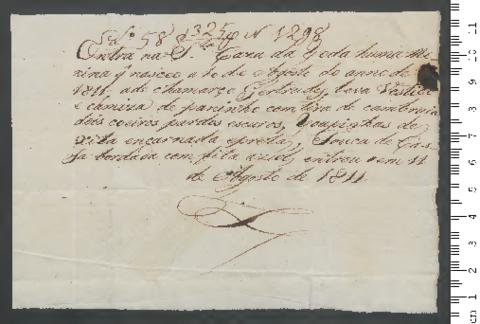 Nº 58 $325 N 1298
Entra na Sta Caza da Roda huma Me
nina q nasceo a 10 de Agosto do anno de
1811. ade chamarçe Gertrudes, leva Vestido
e camiza de paninho com tira de cambraia
dois coeiros pardos escuros, roupinhas de
xita encarnada epreta, touca de Cas-
sa bordada com fita azul, entrou em 11
de Agosto de 1811